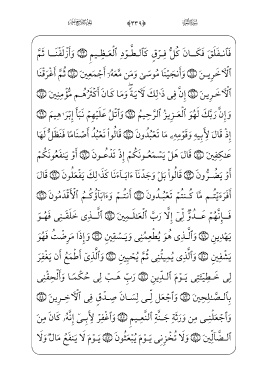 فَٱنفَلَقَ فَكَانَ كُلُّ فِرْقٍ كَٱلطَّوْدِ ٱلْعَظِيمِ ۝ وَأَزْلَفْنَا ثَمَّ
ٱلْـَٔاخَرِينَ ۝ وَأَنجَيْنَا مُوسَىٰ وَمَن مَّعَهُۥٓ أَجْمَعِينَ ۝ ثُمَّ أَغْرَقْنَا
ٱلْـَٔاخَرِينَ ۝ إِنَّ فِى ذَٰلِكَ لَـَٔايَةً وَمَا كَانَ أَكْثَرُهُم مُّؤْمِنِينَ ۝
وَإِنَّ رَبَّكَ لَهُوَ ٱلْعَزِيزُ ٱلرَّحِيمُ ۝ وَٱتْلُ عَلَيْهِمْ نَبَأَ إِبْرَٰهِيمَ ۝
إِذْ قَالَ لِأَبِيهِ وَقَوْمِهِۦ مَا تَعْبُدُونَ ۝ قَالُوا۟ نَعْبُدُ أَصْنَامًا فَنَظَلُّ لَهَا
عَـٰكِفِينَ ۝ قَالَ هَلْ يَسْمَعُونَكُمْ إِذْ تَدْعُونَ ۝ أَوْ يَنفَعُونَكُمْ
أَوْ يَضُرُّونَ ۝ قَالُوا۟ بَلْ وَجَدْنَآ ءَابَآءَنَا كَذَٰلِكَ يَفْعَلُونَ ۝ قَالَ
أَفَرَءَيْتُم مَّا كُنتُمْ تَعْبُدُونَ ۝ أَنتُمْ وَءَابَآؤُكُمُ ٱلْأَقْدَمُونَ ۝
فَإِنَّهُمْ عَدُوٌّ لِّىٓ إِلَّا رَبَّ ٱلْعَـٰلَمِينَ ۝ ٱلَّذِى خَلَقَنِى فَهُوَ
يَهْدِينِ ۝ وَٱلَّذِى هُوَ يُطْعِمُنِى وَيَسْقِينِ ۝ وَإِذَا مَرِضْتُ فَهُوَ
يَشْفِينِ ۝ وَٱلَّذِى يُمِيتُنِى ثُمَّ يُحْيِينِ ۝ وَٱلَّذِىٓ أَطْمَعُ أَن يَغْفِرَ
لِى خَطِيٓـَٔتِى يَوْمَ ٱلدِّينِ ۝ رَبِّ هَبْ لِى حُكْمًا وَأَلْحِقْنِى
بِٱلصَّـٰلِحِينَ ۝ وَٱجْعَل لِّى لِسَانَ صِدْقٍ فِى ٱلْـَٔاخِرِينَ ۝
وَٱجْعَلْنِى مِن وَرَثَةِ جَنَّةِ ٱلنَّعِيمِ ۝ وَٱغْفِرْ لِأَبِىٓ إِنَّهُۥ كَانَ مِنَ
ٱلضَّآلِّينَ ۝ وَلَا تُخْزِنِى يَوْمَ يُبْعَثُونَ ۝ يَوْمَ لَا يَنفَعُ مَالٌ وَلَا